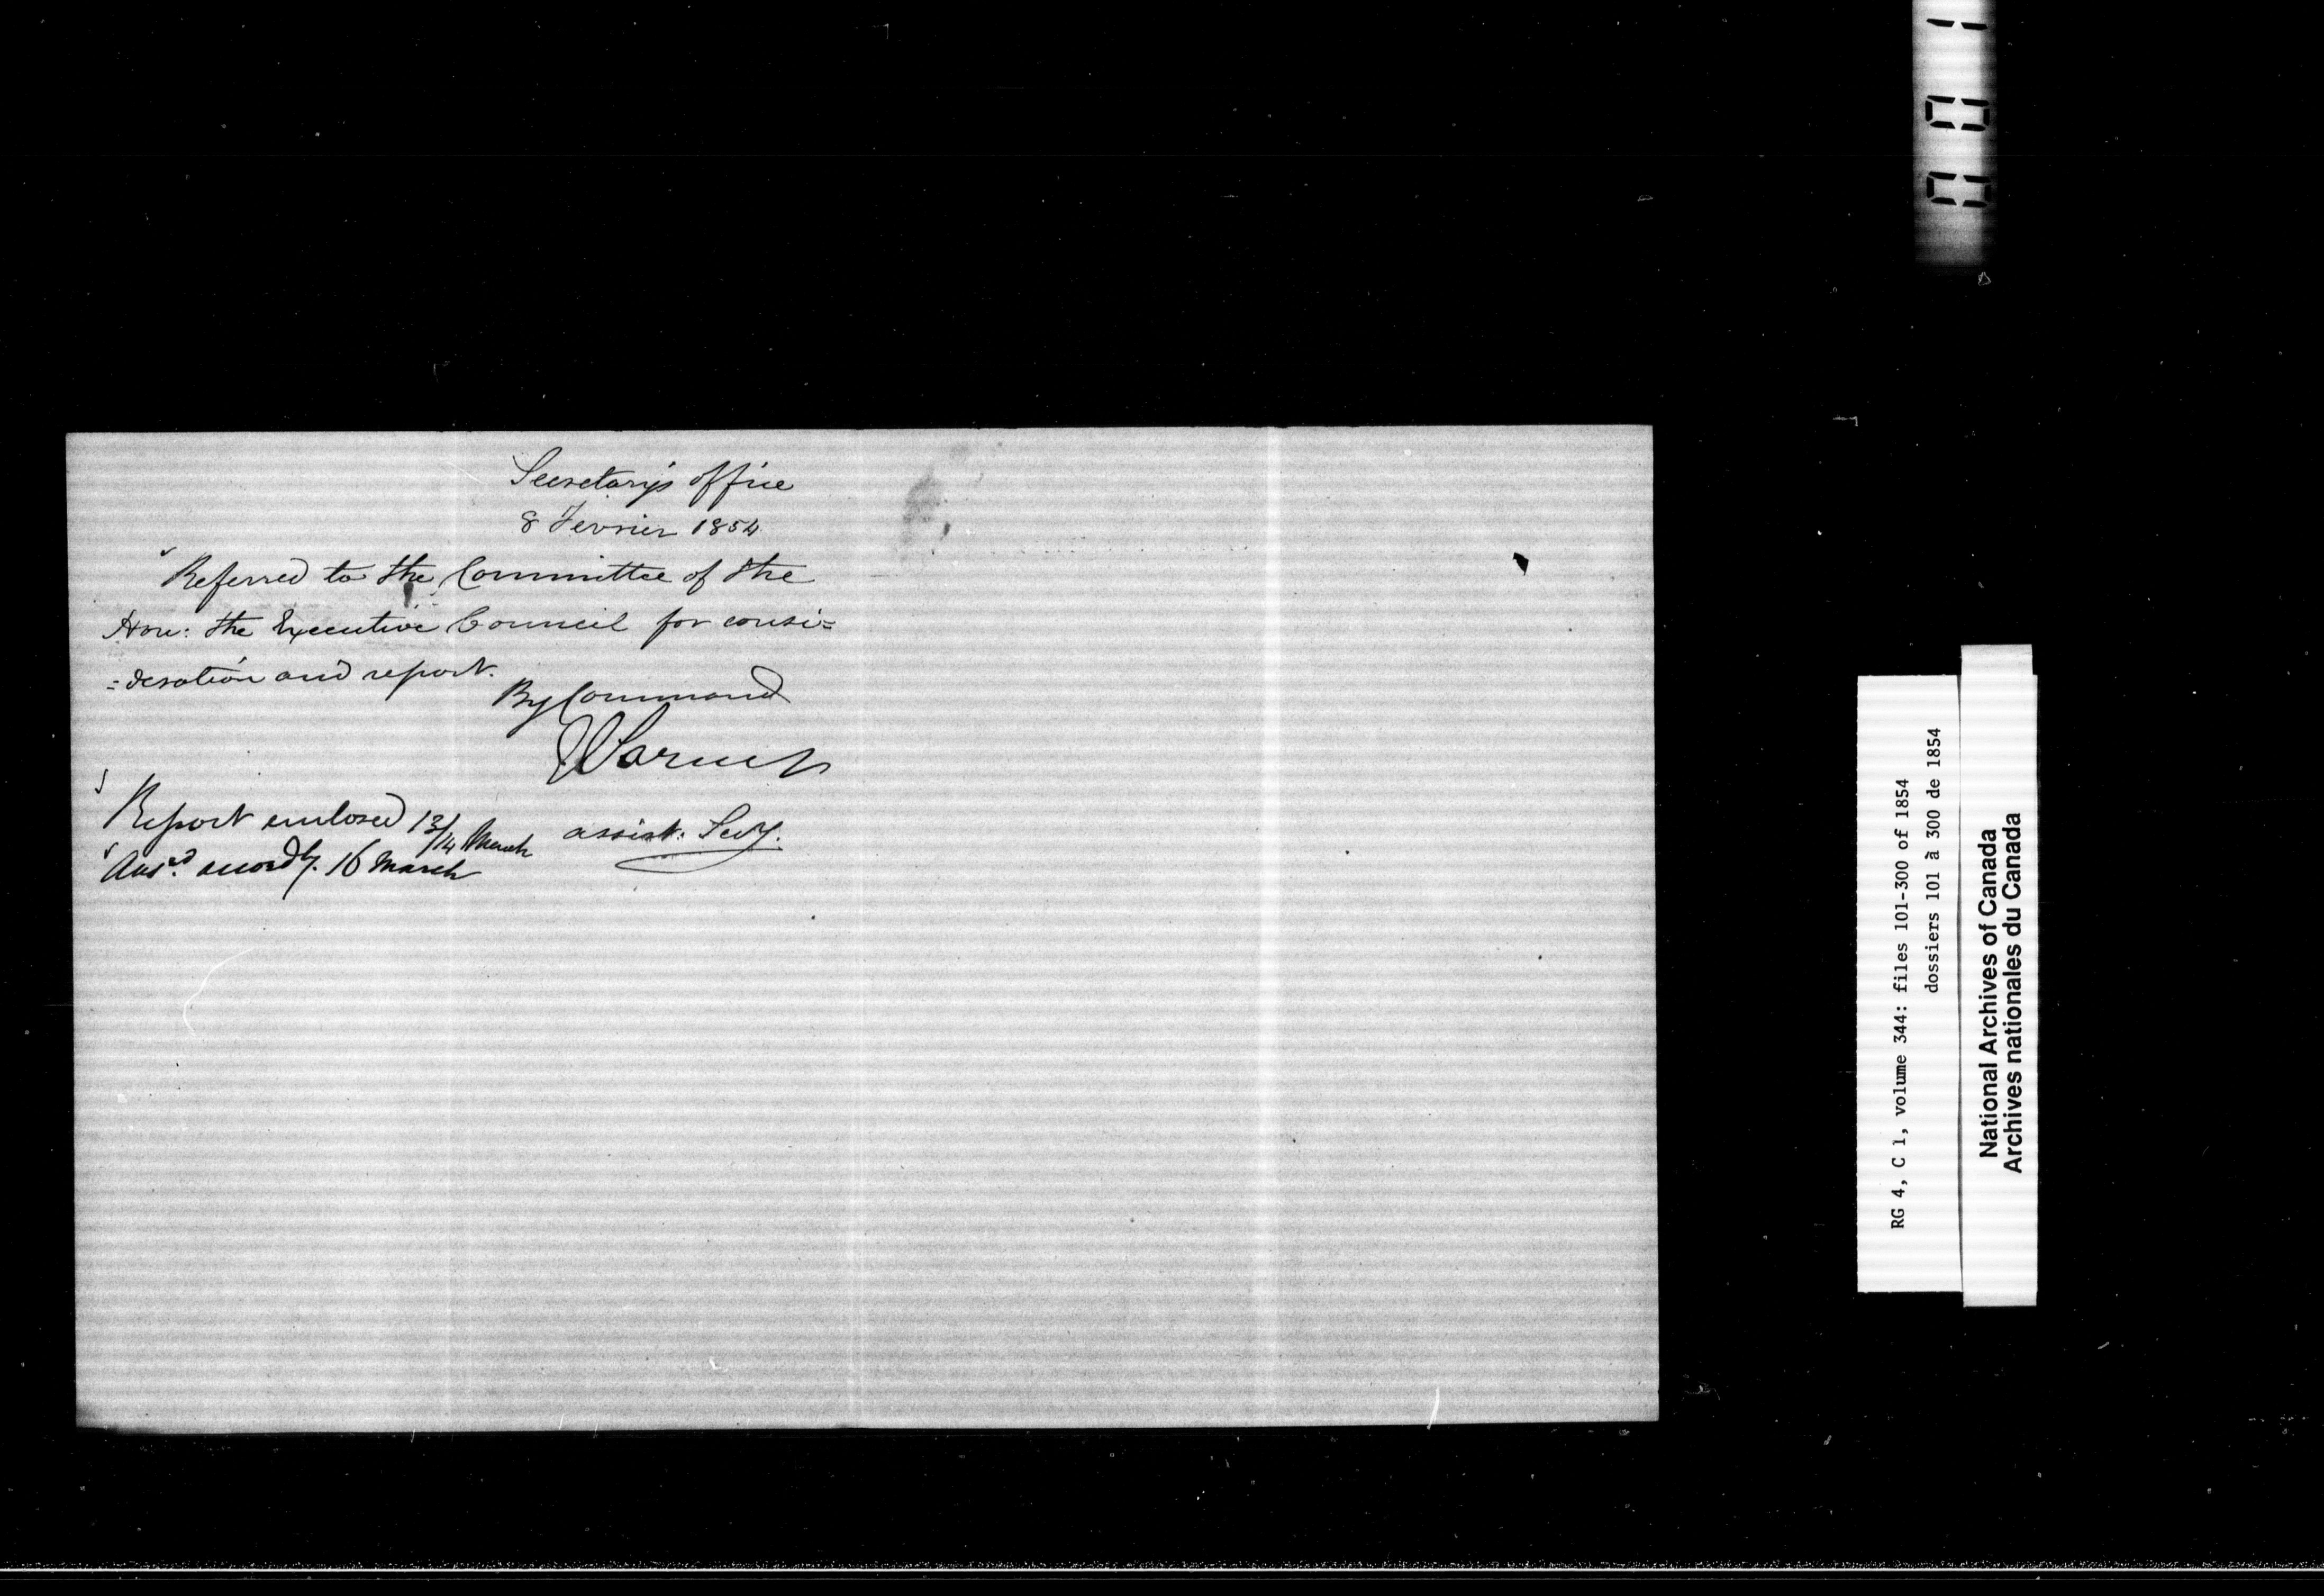 Secretary's office
8 Fevrier 1854
Referred to the Committee of the
Hon: the Executive Council for consi=
=deration and report.
By Command
Report enclosed 13/14 March
assist. Secy.
Ansd. accordy. 16 March
RG 4, C 1, volume 344: files 101-300 of 1854
dossiers 101 à 300 de 1854
National Archives of Canada
Archives nationales du Canada
001